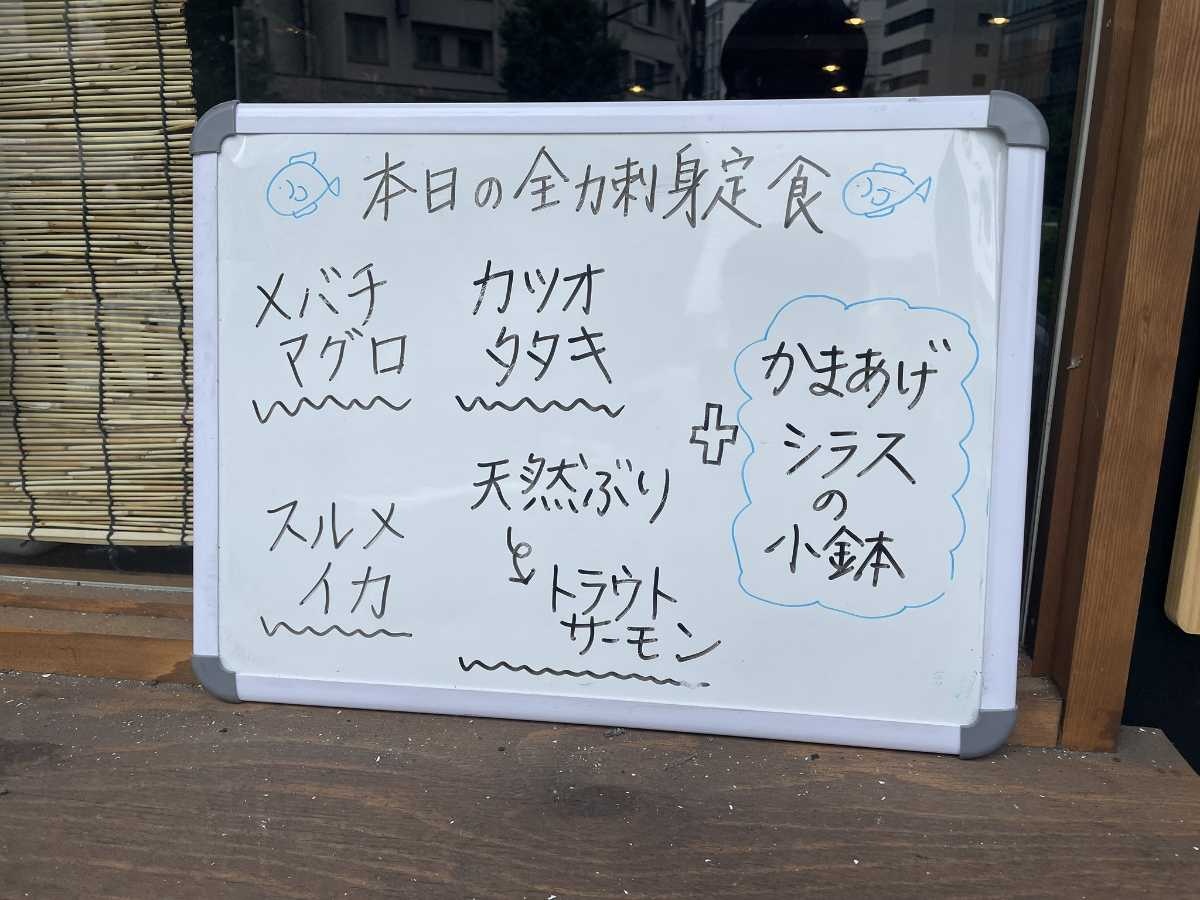 本日の全力刺身定食
メバチ
マグロ
カツオ
タタキ
スルメ
イカ
天然ぶり
トラウト
サーモン
+
かまあげ
シラス
の
小鉢